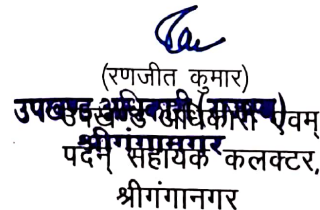 (रणजीत कुमार)
उपखण्ड अधिकारी (राजस्व)
उपखण्ड अधिकारी एवम्
श्रीगंगानगर
पदेन् सहायक कलक्टर,
श्रीगंगानगर